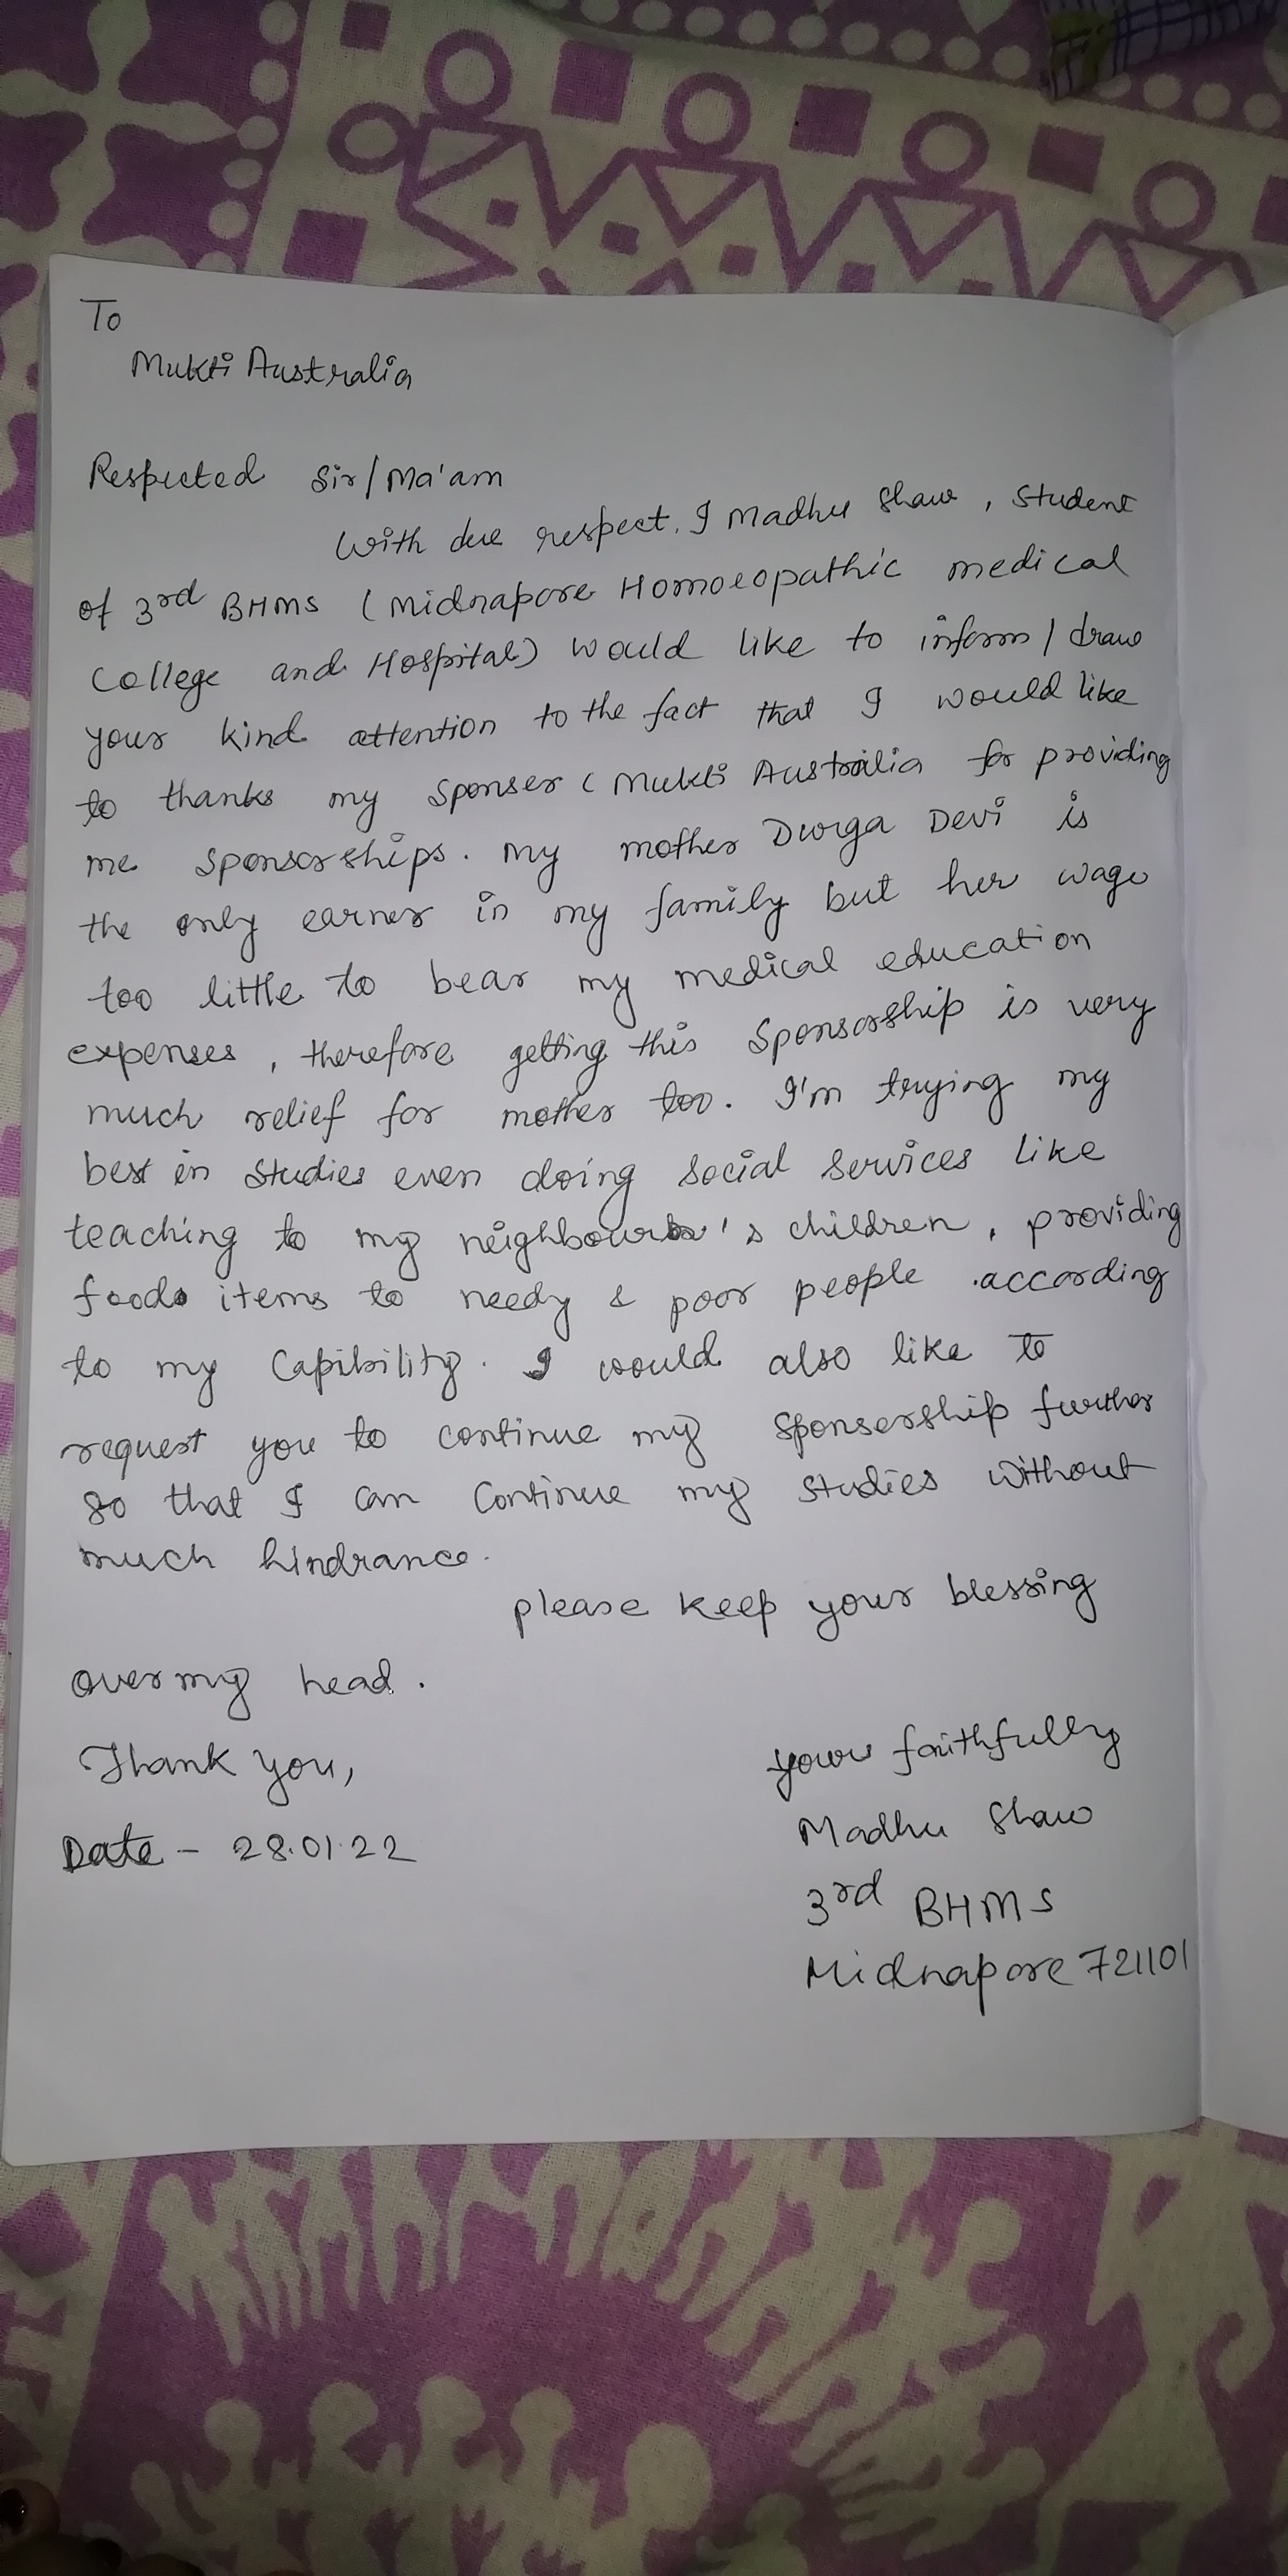 To
Mukti Australia
Respected Sir/Ma'am
With due respect, I Madhu Shaw, Student
of 3rd BHMS (Midnapore Homoeopathic medical
College and Hospital) would like to inform/draw
your kind attention to the fact that I would like
to thanks my Sponser (Mukti Australia for providing
me sponsorships. My mother Durga Devi is
the only earner in my family but her wage
too little to bear my medical education
expenses, therefore getting this Sponsorship is very
much relief for mother too. I'm trying my
best in studies even doing social services like
teaching to my neighbour's children, providing
food items to needy & poor people according
to my Capibility. I would also like to
request you to continue my Sponsership further
so that I can Continue my studies without
much hindrance.
please keep your blessing
over my head.
Thank you,
your faithfully
Madhu Shaw
Date - 28.01.22
3rd BHMS
Midnapore 721101